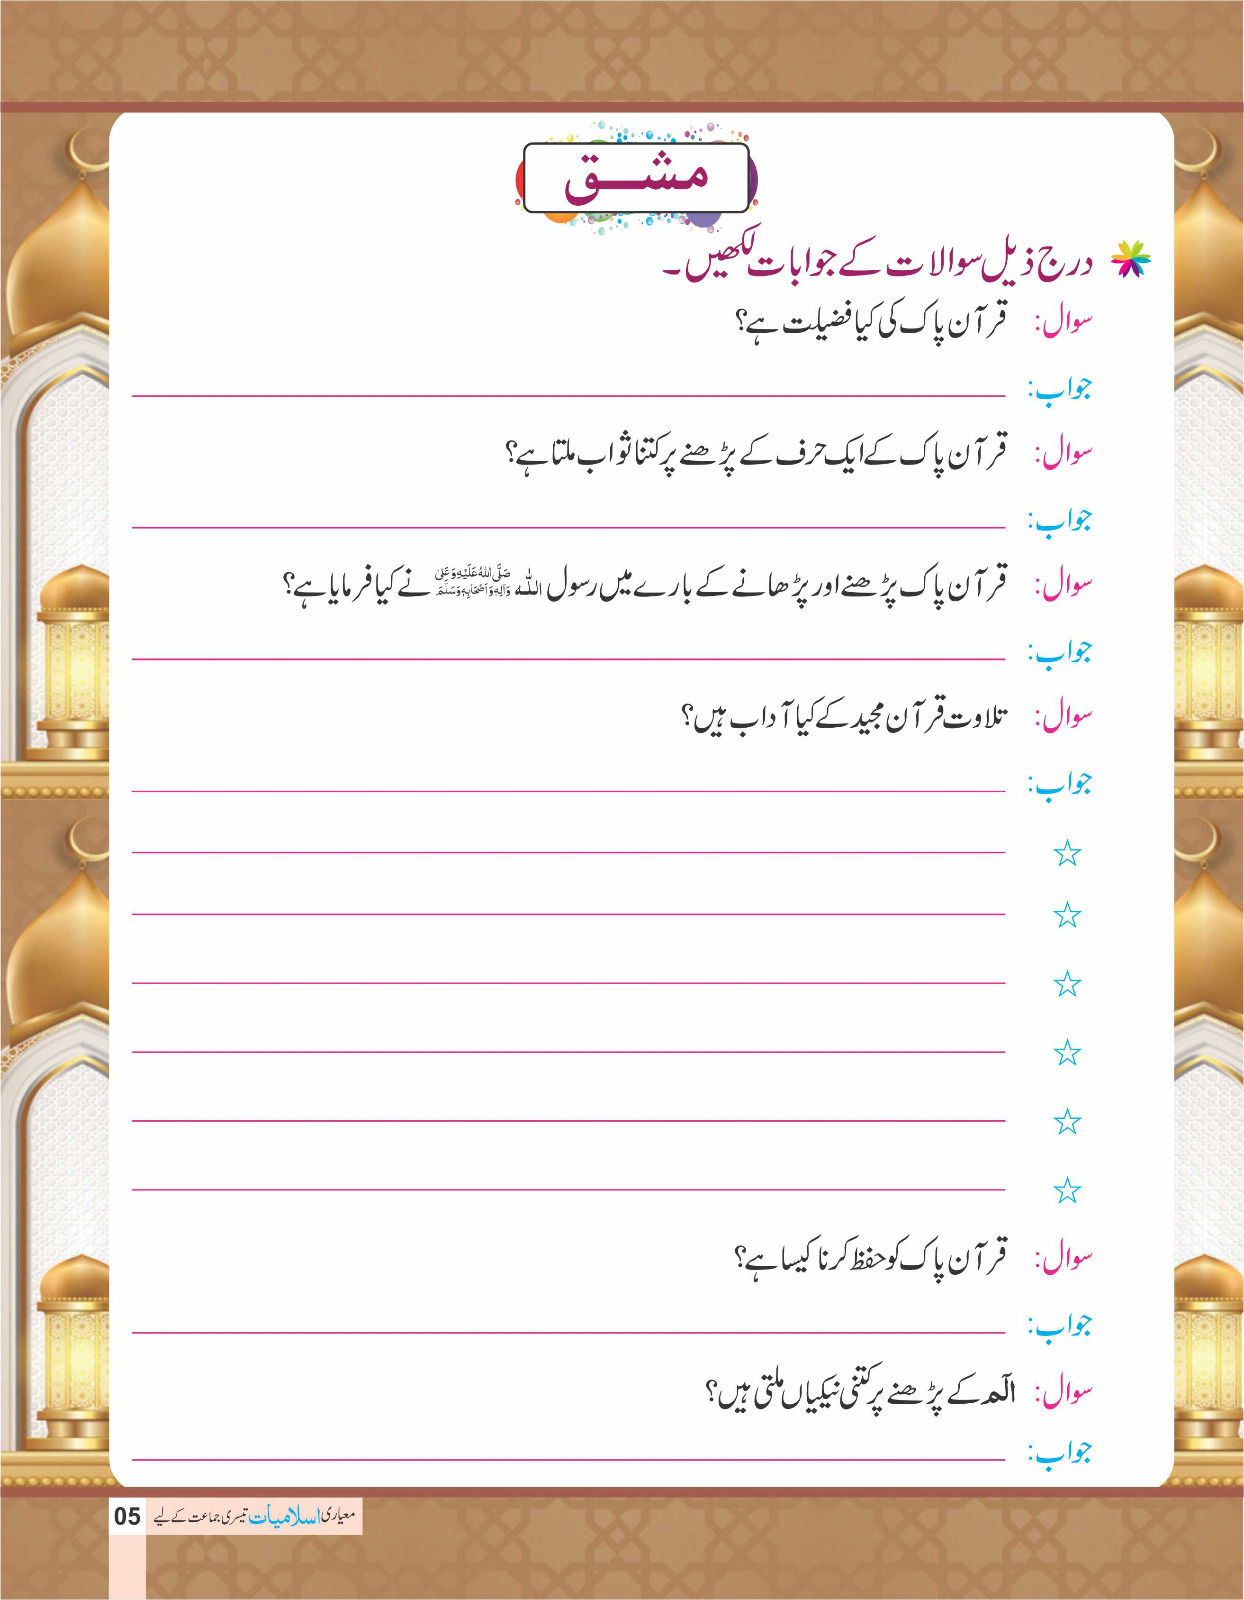 مشق
درج ذیل سوالات کے جوابات لکھیں۔
سوال: قرآن پاک کی کیا فضیلت ہے؟
جواب:
سوال: قرآن پاک کے ایک حرف کے پڑھنے پر کتنا ثواب ملتا ہے؟
جواب:
سوال: قرآن پاک پڑھنے اور پڑھانے کے بارے میں رسول اللہ صَلَّی اللہُ عَلَیْہِ وَعَلٰی وَاٰلِہٖ وَاَصْحَابِہٖ وَسَلَّمَ نے کیا فرمایا ہے؟
جواب:
سوال: تلاوت قرآن مجید کے کیا آداب ہیں؟
جواب:
سوال: قرآن پاک کو حفظ کرنا کیسا ہے؟
جواب:
سوال: الٓمٓ کے پڑھنے پر کتنی نیکیاں ملتی ہیں؟
جواب:
معیاری اسلامیات تیسری جماعت کے لیے 05